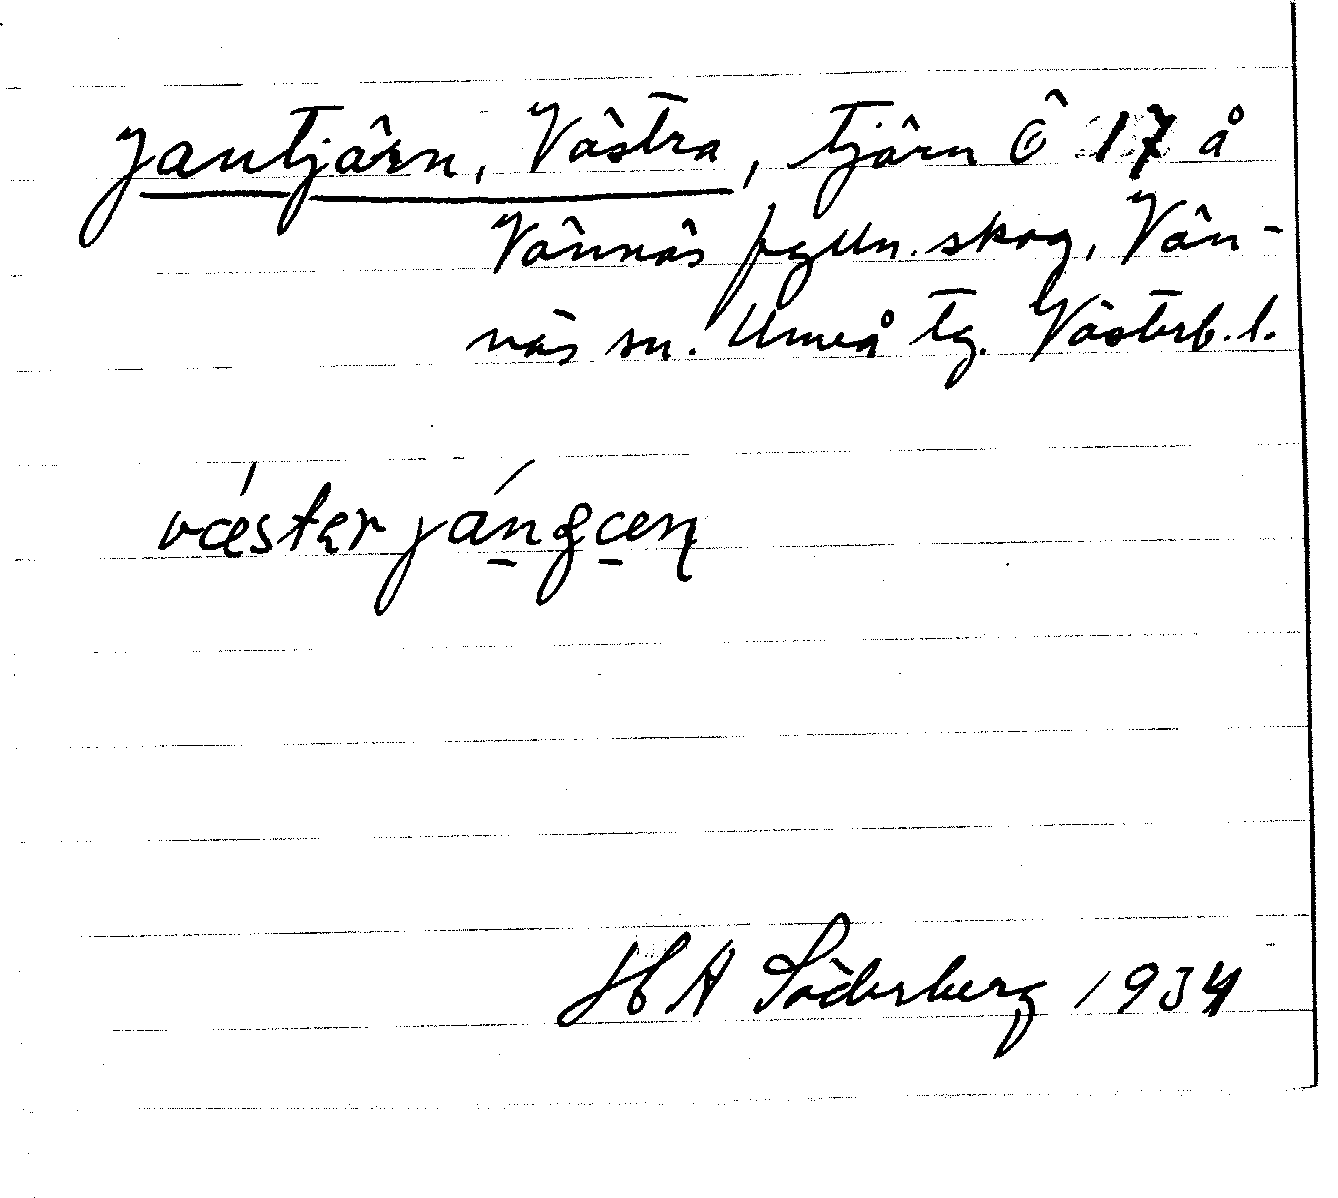 Jantjärn, Västra, tjärn Ö 17 å
Vännäs fgIn. skog, Vän-
näs sn. Umeå tg. Västerb. l.
væster jángæn
H A Söderberg 1934